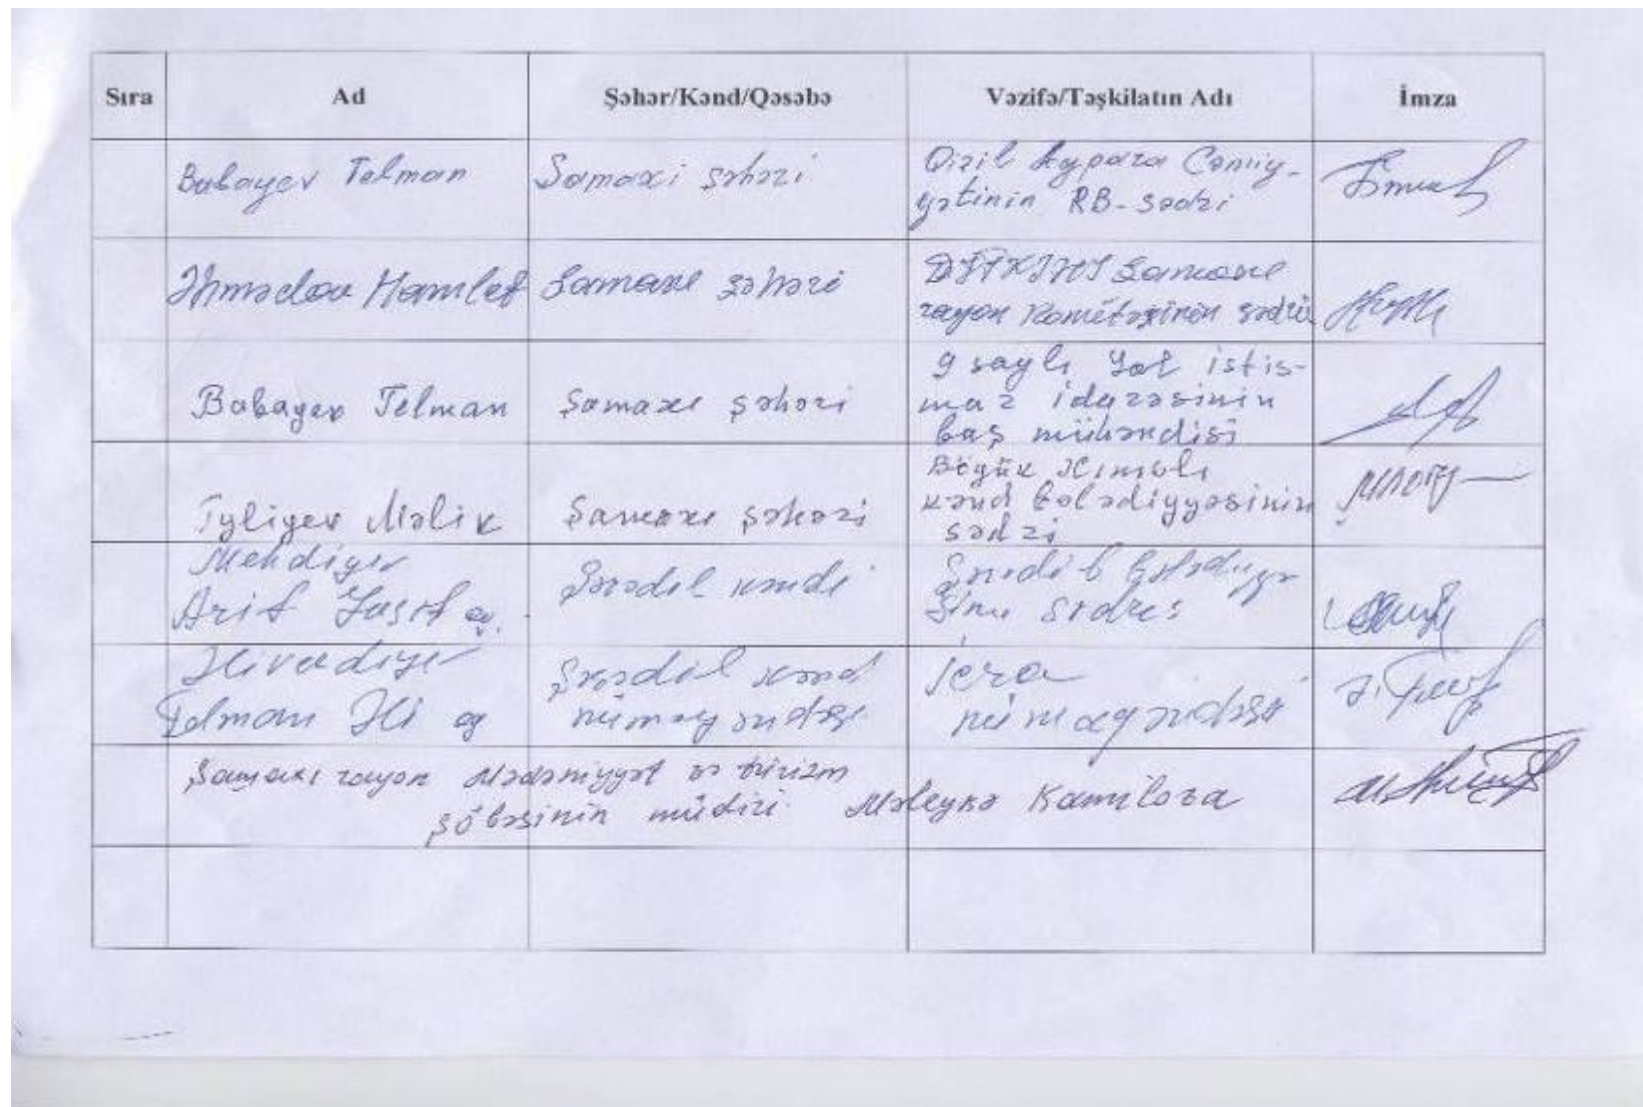 Sıra Ad Şəhər/Kənd/Qəsəbə Vəzifə/Təşkilatın Adı İmza
Babayev Telman Şamaxi şəhəri Qizil Aypara Cəmiy-
yətinin RB-sədri
Əhmədov Hamlet Şamaxı şəhəri Şamaxı
rayon Komitəsinin sədri
Babayev Telman Şamaxı şəhəri 9 saylı yol istis-
mar idarəsinin
baş mühəndisi
Məlik Şamaxı şəhəri Böyük Xınıslı
kənd bələdiyyəsinin
sədri
Mehdiyev
Arif Şərədil kəndi Şərədil
sədri
Telman Əli oğ Şərədil kənd
nümayəndəsi icra
nümayəndəsi
Şamaxı rayon Mədəniyyət və turizm
şöbəsinin müdiri Mələykə Kamilova